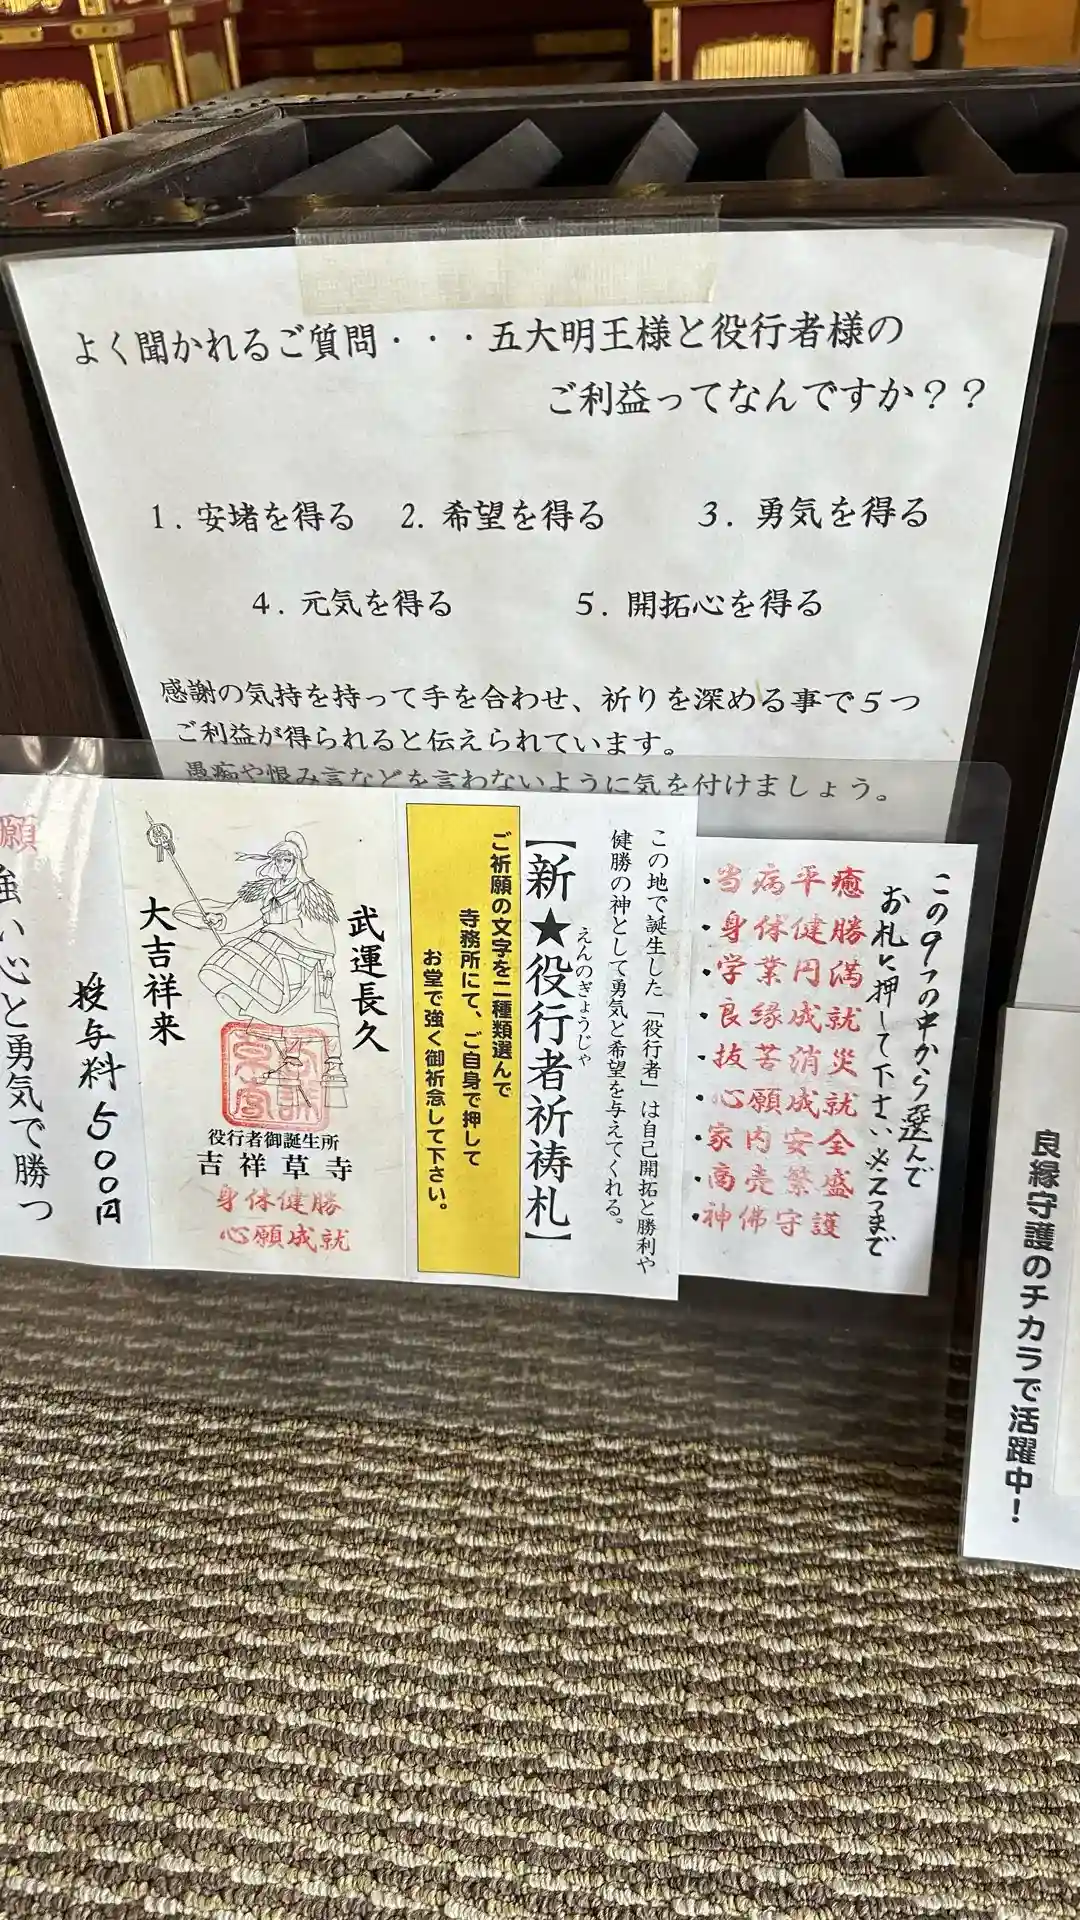 よく聞かれるご質問・・・五大明王様と役行者様の
ご利益ってなんですか？？
1. 安堵を得る　2. 希望を得る　3. 勇気を得る
4. 元気を得る　5. 開拓心を得る
感謝の気持を持って手を合わせ、祈りを深める事で５つ
ご利益が得られると伝えられています。
愚痴や恨み言などを言わないように気を付けましょう。
この9つの中から選んで
お札に押して下さい※2つまで
・当病平癒
・身体健勝
・学業円満
・良縁成就
・抜苦消災
・心願成就
・家内安全
・商売繁盛
・神佛守護
この地で誕生した「役行者」は自己開拓と勝利や
健勝の神として勇気と希望を与えてくれる。
えんのぎょうじゃ
【新★役行者祈祷札】
ご祈願の文字を二種類選んで
寺務所にて、ご自身で押して
お堂で強く御祈念して下さい。
武運長久
大吉祥来
役行者御誕生所
吉祥草寺
身体健勝
心願成就
授与料500円
強い心と勇気で勝つ
願
良縁守護のチカラで活躍中！